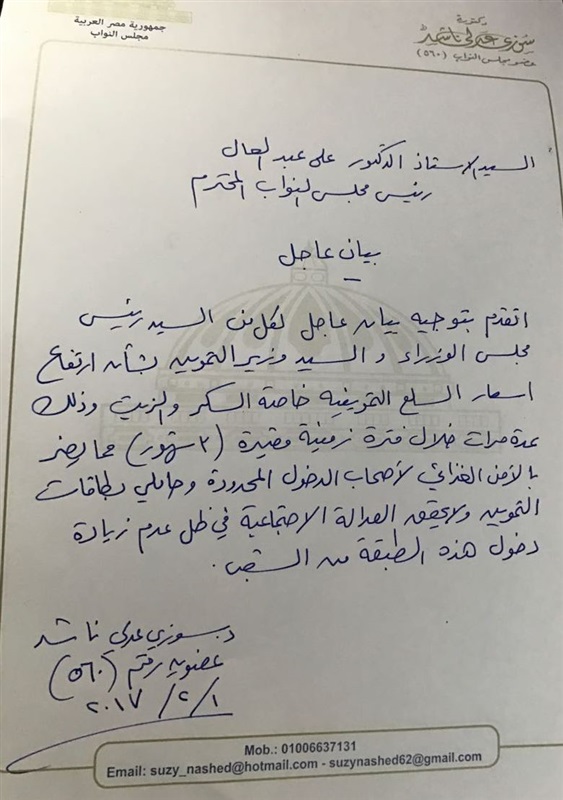 جمهورية مصر العربية
مجلس النواب
دكتورة
سوزى عدلى ناشد
عضو مجلس النواب (٥٦٠)
السيد الاستاذ الدكتور على عبد العال
رئيس مجلس النواب المحترم
بيان عاجل
اتقدم بتوجيه بيان عاجل لكل من السيد رئيس
مجلس الوزراء و السيد وزير التموين بشأن ارتفاع
اسعار السلع التموينية خاصة السكر والزيت وذلك
عدة مرات خلال فترة زمنية قصيرة (٣ شهور) مما يضر
بالأمن الغذائي لأصحاب الدخول المحدودة وحاملي بطاقات
التموين ولا يحقق العدالة الاجتماعية في ظل عدم زيادة
دخول هذه الطبقة من الشعب.
د. سوزي عدلي ناشد
عضوية رقم (٥٦٠)
٢٠١٧/٢/١
Mob.: 01006637131
Email: suzy_nashed@hotmail.com - suzynashed62@gmail.com